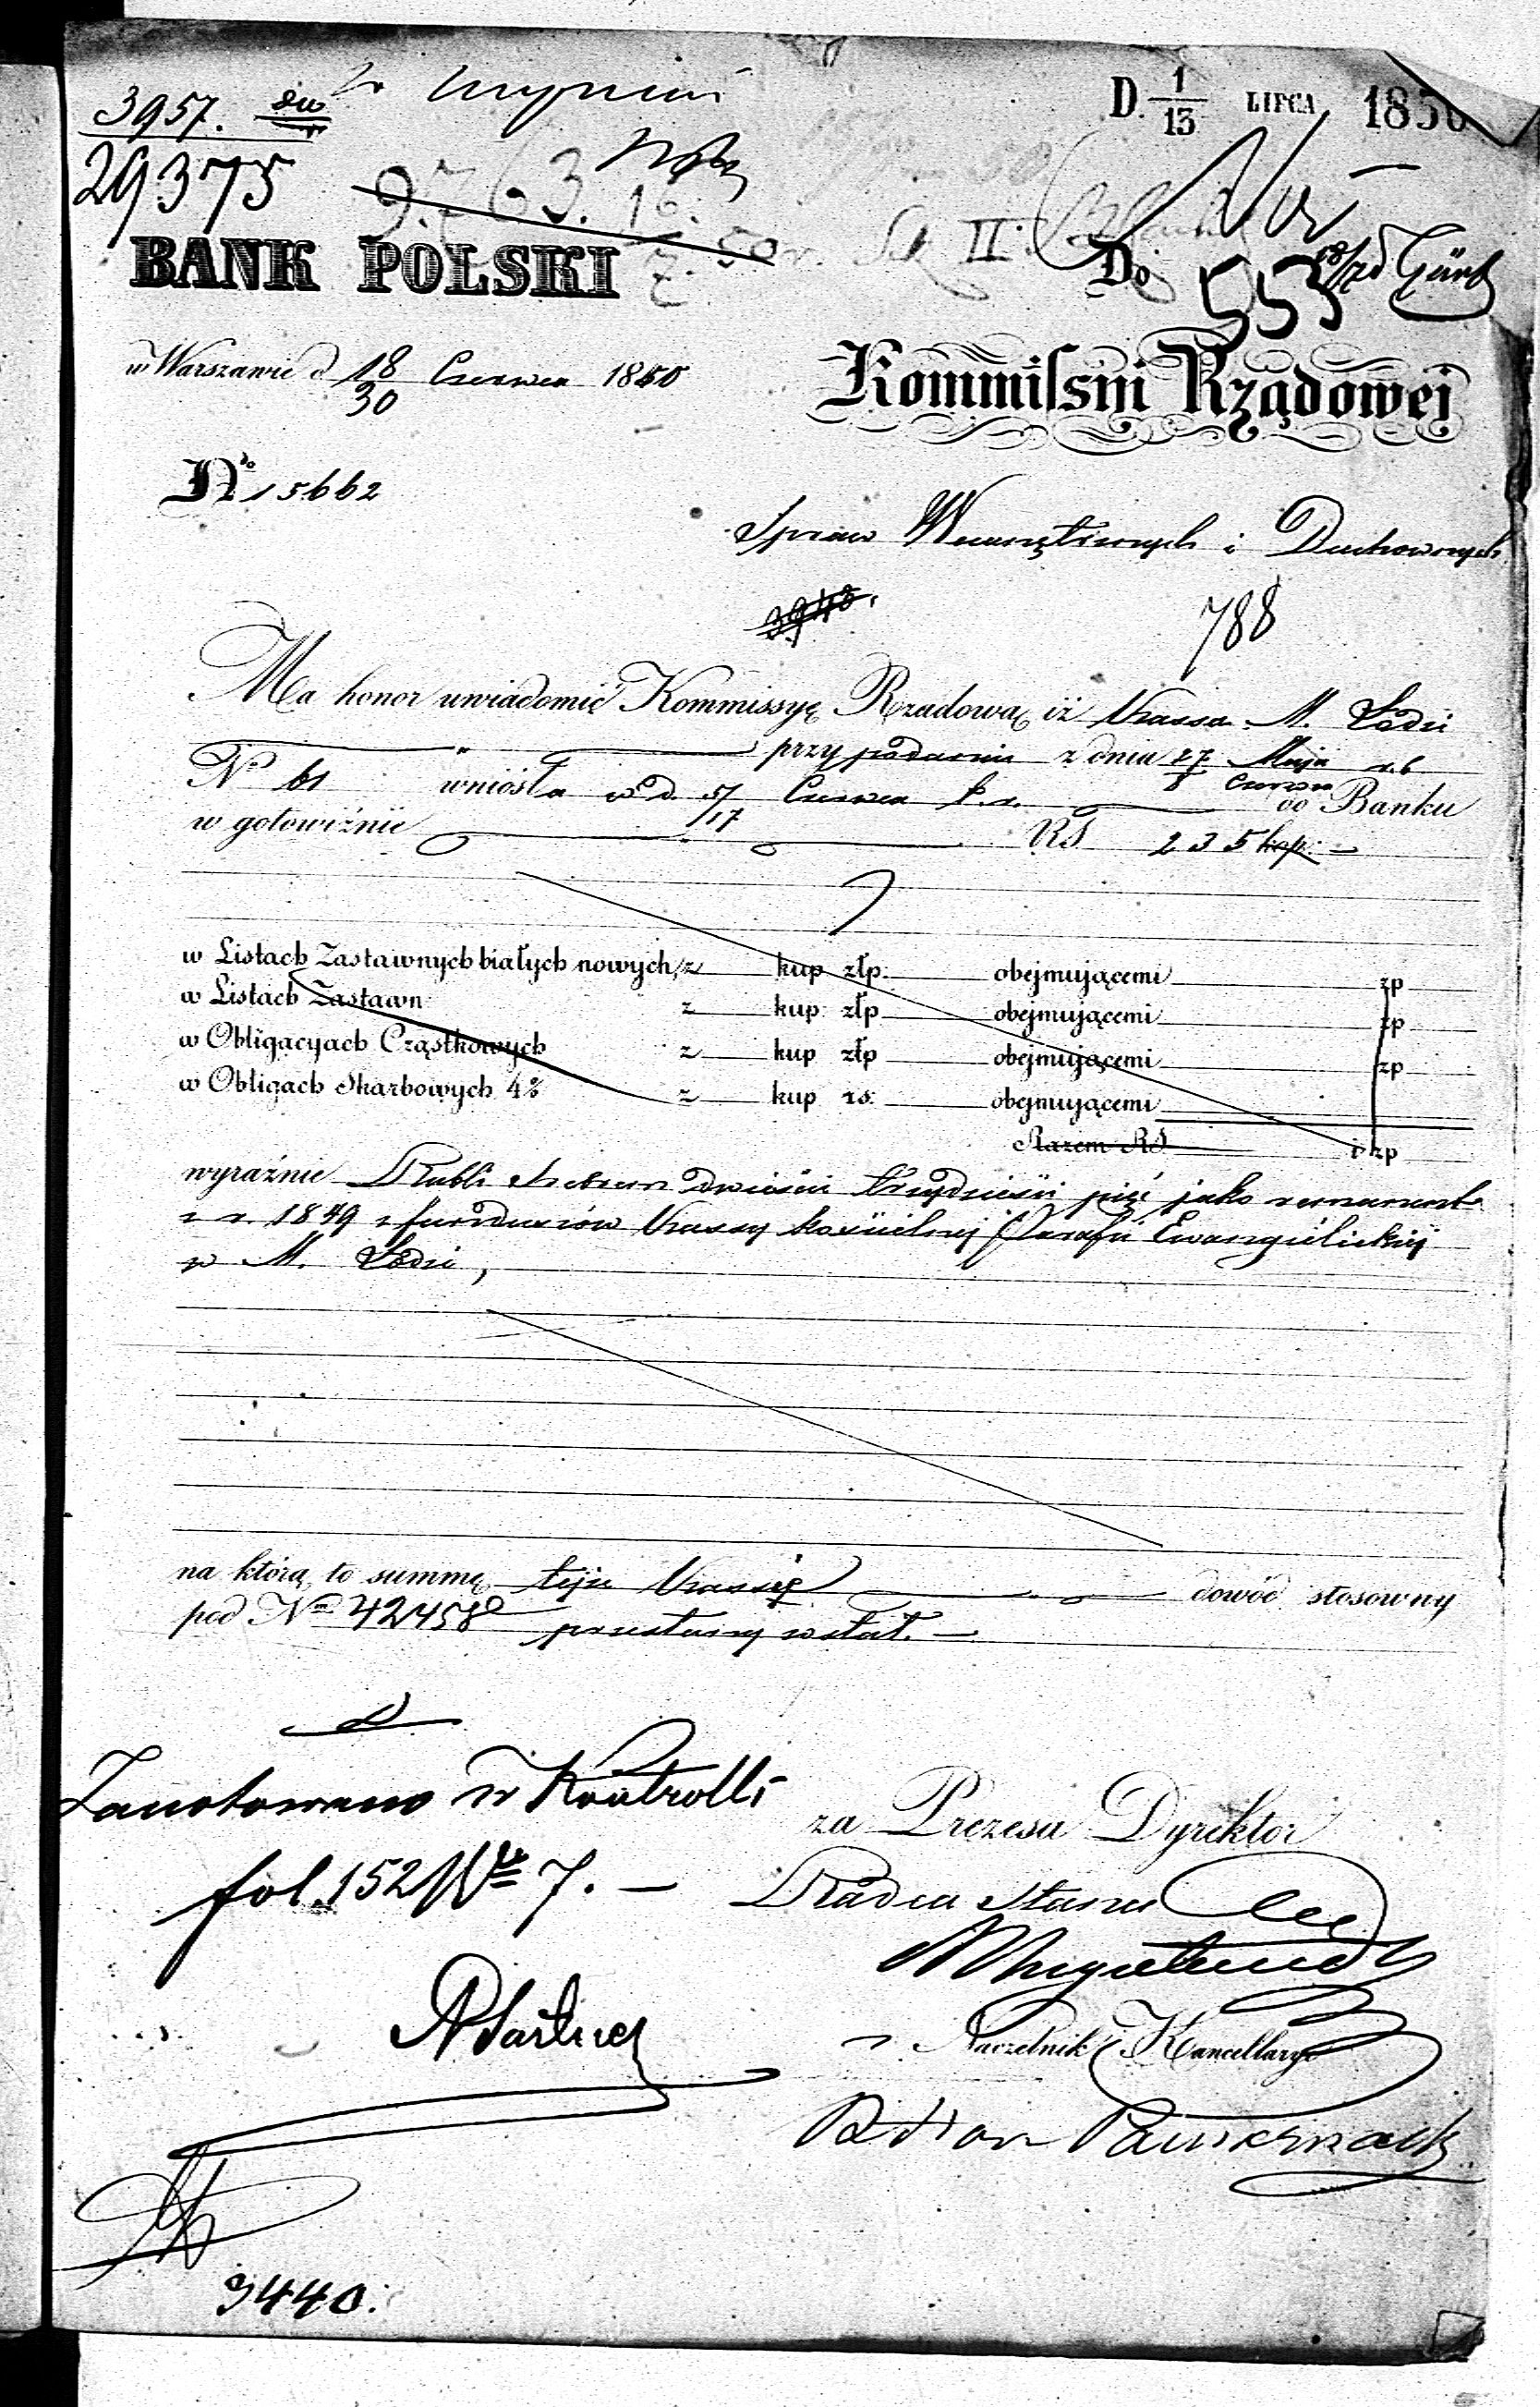 3957.
29375
D. 1/13 LIPCA 1850
9763.
II
BANK POLSKI
Do
553
w Warszawie d 18/30 Czerwca 1850
Kommissyi Rządowej
No 15662
Spraw Wewnętrznych i Duchownych
3948.
788
Ma honor uwiadomić Kommissyę Rządową iż Kassa M. Łodzi
przy podaniu z dnia 27 Maja / 8 Czerwca r. b
No 61 wniosła w d. 5/17 Czerwca b. r. do Banku
w gotowiźnie RS 235 kop: —
w Listach Zastawnych białych nowych z kup złp. obejmującemi zp
w Listach Zastawn z kup: złp obejmującemi zp
w Obligacyach Cząstkowych z kup złp obejmującemi zp
w Obligach Skarbowych 4% z kup rs: obejmującemi
Razem RS i zp
wyraźnie Rubli srebrem dwieście trzydzieści pięć jako remanent
z r. 1849 z funduszów Kassy kościelnej Parafii Ewangielickiej
w M. Łodzi,
na którą to summę tejże Kassie dowód stosowny
pod Nm 42458 przesłany został. —
Zanotowano w Kontrolli
fol. 152 7. —
za Prezesa Dyrektor
Radca Stanu
Naczelnik Kancellaryi
3440.